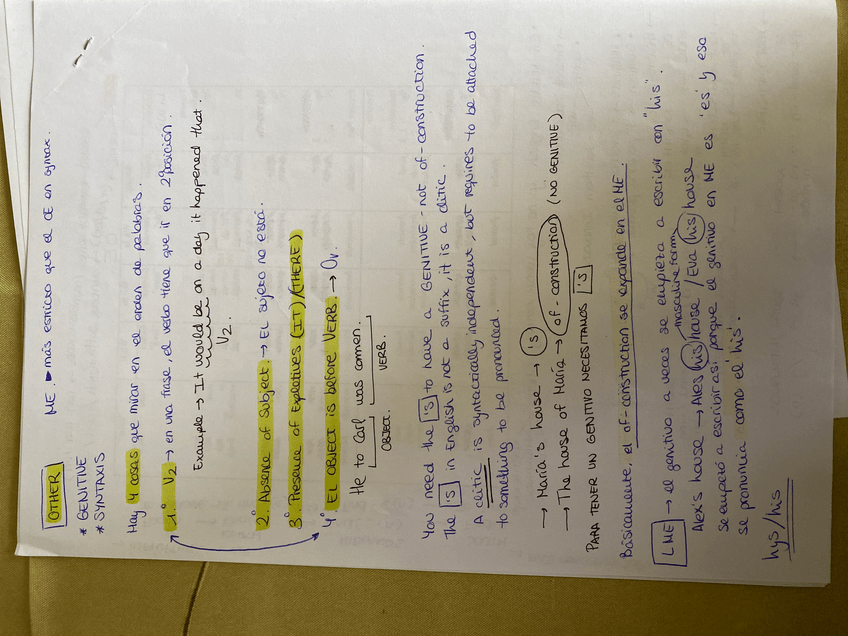 OTHER
ME → más estricto que el OE en syntax.
* GENITIVE
* SYNTAXIS
Hay 4 cosas que mirar en el orden de palabras.
1º V2 → en una frase, el verbo tiene que ir en 2º posición.
Example → It would be on a day it happened that.
V2.
2º Absence of Subject. → El sujeto no está.
3º Presence of Expletives (IT)/(THERE)
4º EL OBJECT is before VERB. → Ov.
He to Carl was commen.
OBJECT. VERB.
You need the 's to have a GENITIVE - not of-construction.
The 's in English is not a suffix, it is a clitic.
A clitic is syntactically independent, but requires to be attached
to something to be pronounced.
→ María's house → 's
→ The house of María → of-construction (NO GENITIVE)
PARA TENER UN GENITIVO NECESITAMOS 's
Básicamente, el of-construction se expande en el ME.
LME → el genitivo a veces se empieza a escribir con "his".
masculine form
Alex's house → Alex his house / Eva his house
se empezó a escribir así porque el genitivo en ME es 'es' y esa
se pronuncia como el his.
hys/his